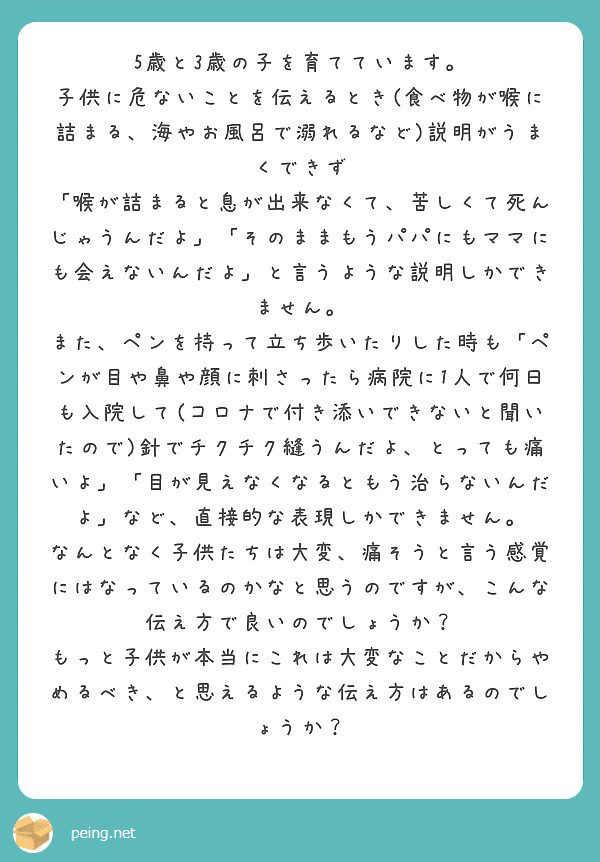 5歳と3歳の子を育てています。
子供に危ないことを伝えるとき(食べ物が喉に
詰まる、海やお風呂で溺れるなど)説明がうま
くできず
「喉が詰まると息が出来なくて、苦しくて死ん
じゃうんだよ」「そのままもうパパにもママに
も会えないんだよ」と言うような説明しかでき
ません。
また、ペンを持って立ち歩いたりした時も「ペ
ンが目や鼻や顔に刺さったら病院に1人で何日
も入院して(コロナで付き添いできないと聞い
たので)針でチクチク縫うんだよ、とっても痛
いよ」「目が見えなくなるともう治らないんだ
よ」など、直接的な表現しかできません。
なんとなく子供たちは大変、痛そうと言う感覚
にはなっているのかなと思うのですが、こんな
伝え方で良いのでしょうか?
もっと子供が本当にこれは大変なことだからや
めるべき、と思えるような伝え方はあるのでし
ょうか?
peing.net